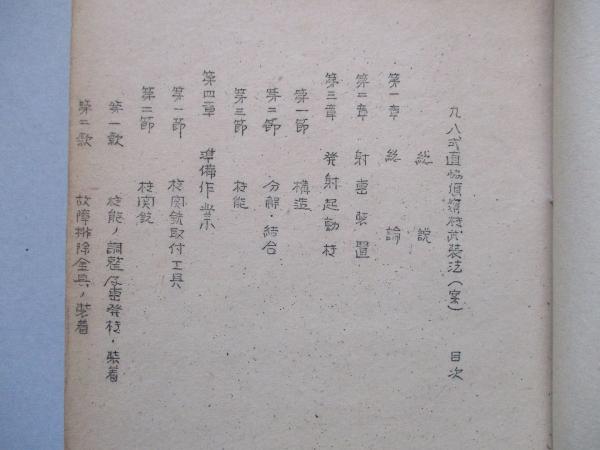 九八式直協偵察機武装法(案) 目次
総説
第一章 総論
第二章 射撃装置
第三章 発射起動機
第一節 構造
第二節 分解・結合
第三節 機能
第四章 準備作業
第一節 機関銃取付工具
第二節 機関銃
第一款 機能ノ調整及連発機ノ装着
第二款 故障排除金具ノ装着